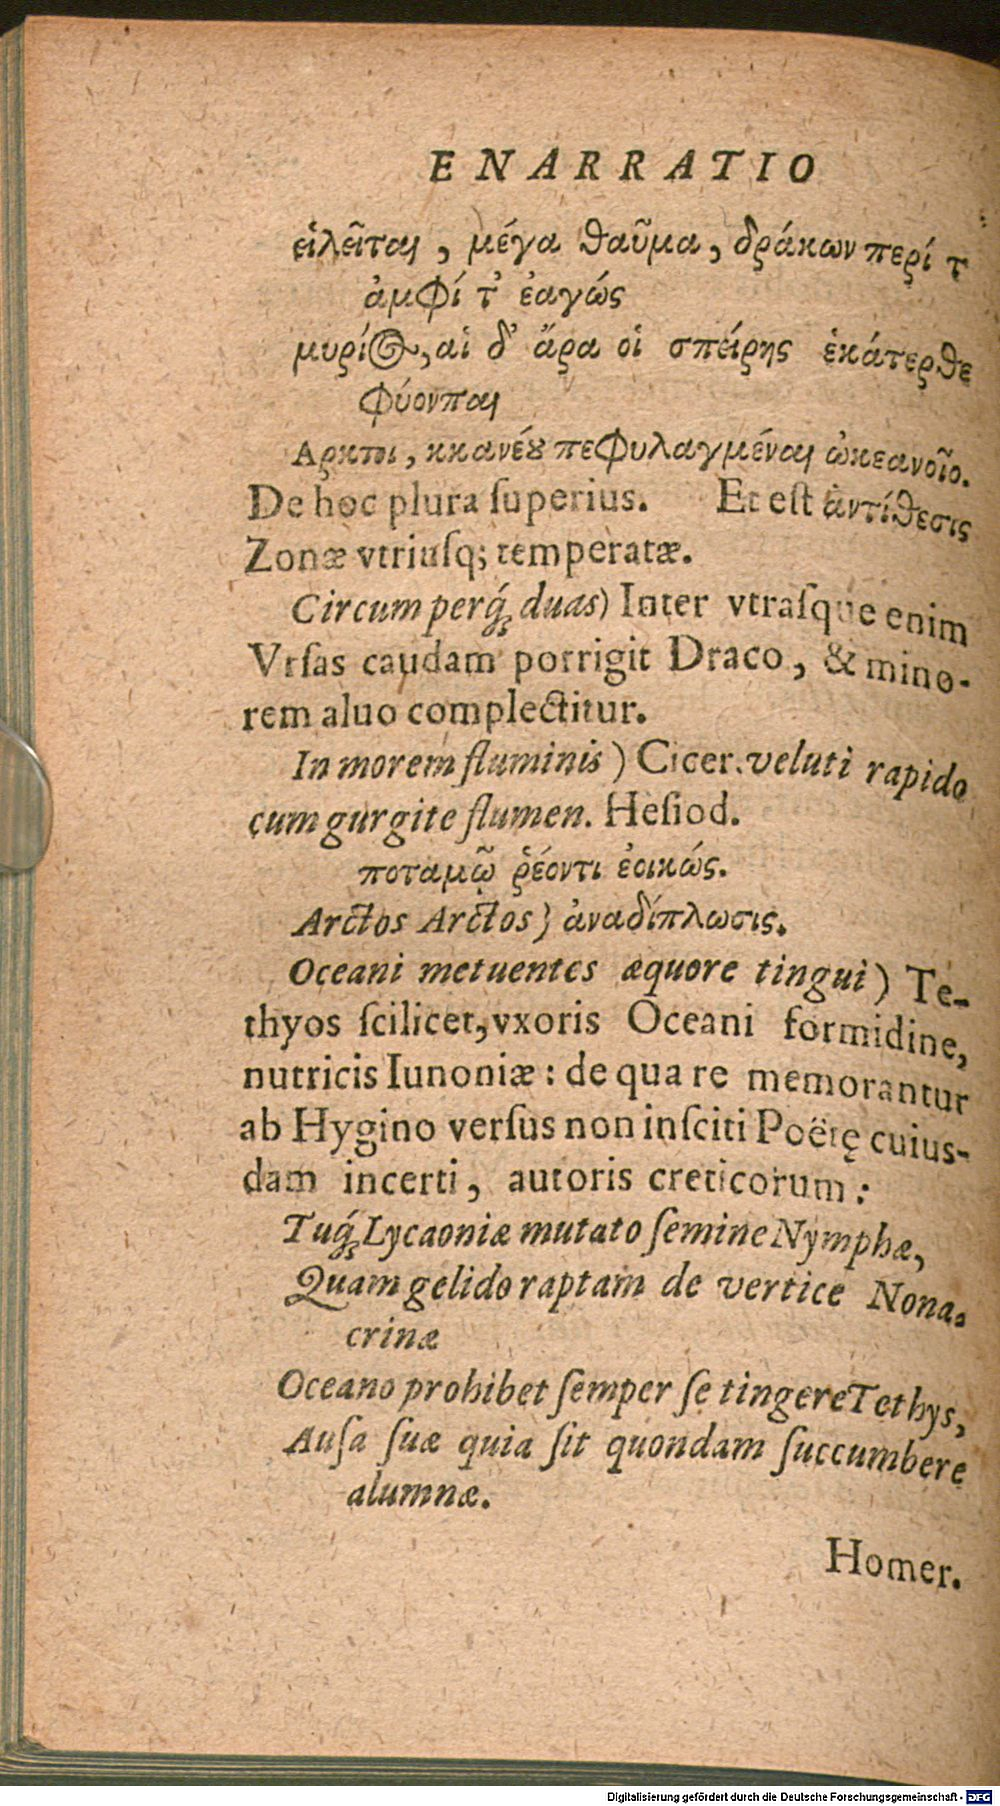 ENARRATIO
εἰλεῖται, μέγα θαῦμα, δράκων περί τ
ἀμφί τ' ἐαγώς
μυρίος, αἱ δ' ἄρα οἱ σπείρης ἑκάτερθε
φύονται
Αρκτοι, κυανέȣ πεφυλαγμέναι ὠκεανοῖο.
De hoc plura ſuperius. Et eſt ἀντίθεσις
Zonæ vtriuſq; temperatæ.
Circum perq́; duas) Inter vtraſque enim
Vrſas caudam porrigit Draco, & mino-
rem aluo complectitur.
In morem fluminis) Cicer. veluti rapido
cum gurgite flumen. Heſiod.
ποταμῷ ῥέοντι ἐοικώς.
Arctos Arctos) ἀναδίπλωσις.
Oceani metuentes æquore tingui) Te-
thyos ſcilicet, vxoris Oceani formidine,
nutricis Iunoniæ: de qua re memorantur
ab Hygino verſus non inſciti Poëtę cuius-
dam incerti, autoris creticorum:
Tuq́; Lycaoniæ mutato ſemine Nymphæ,
Quam gelido raptam de vertice Nona-
crinæ
Oceano prohibet ſemper ſe tingere Tethys,
Auſa ſuæ quia ſit quondam ſuccumbere
alumnæ.
Homer.
Digitalisierung gefördert durch die Deutsche Forschungsgemeinschaft - DFG